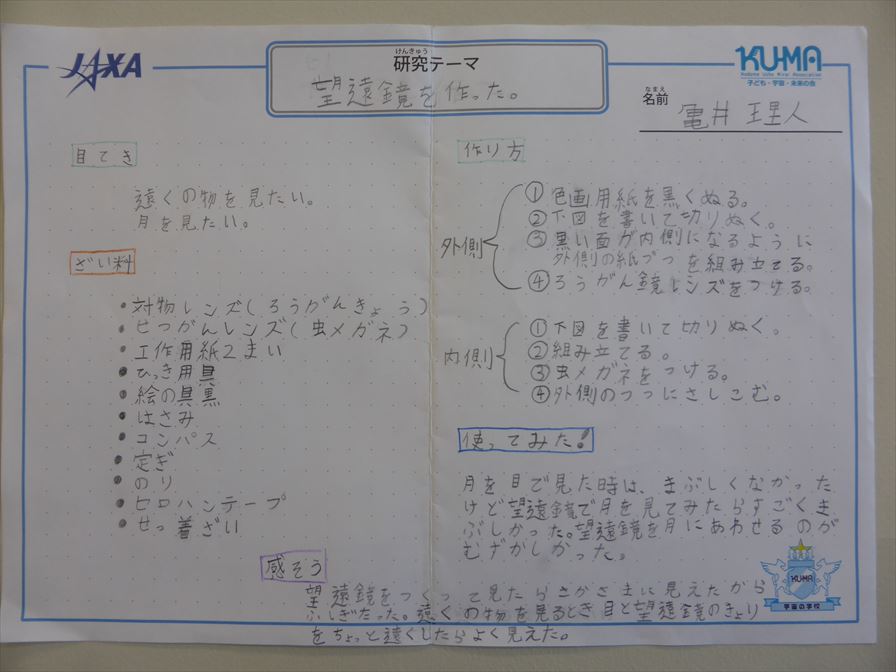 JAXA
けんきゅう
研究テーマ
望遠鏡を作った。
KU-MA
子ども・宇宙・未来の会
なまえ
名前
亀井 理人
目てき
遠くの物を見たい。
月を見たい。
ざい料
・対物レンズ(ろうがんきょう)
・せつがんレンズ(虫メガネ)
・工作用紙2まい
・ひっき用具
・絵の具黒
・はさみ
・コンパス
・定ぎ
・のり
・セロハンテープ
・せっ着ざい
作り方
外側
①色画用紙を黒くぬる。
②下図を書いて切りぬく。
③黒い面が内側になるように
外側の紙づつを組み立てる。
④ろうがん鏡レンズをつける。
内側
①下図を書いて切りぬく。
②組み立てる。
③虫メガネをつける。
④外側のつつにさしこむ。
使ってみた!
月を目で見た時は、まぶしくなかった
けど望遠鏡で月を見てみたらすごくま
ぶしかった。望遠鏡を月にあわせるのが
むずかしかった。
感そう
望遠鏡をつくって見たらさかさまに見えたから
ふしぎだった。遠くの物を見るとき目と望遠鏡のきょり
をちょっと遠くしたらよく見えた。
KU-MA
宇宙の学校